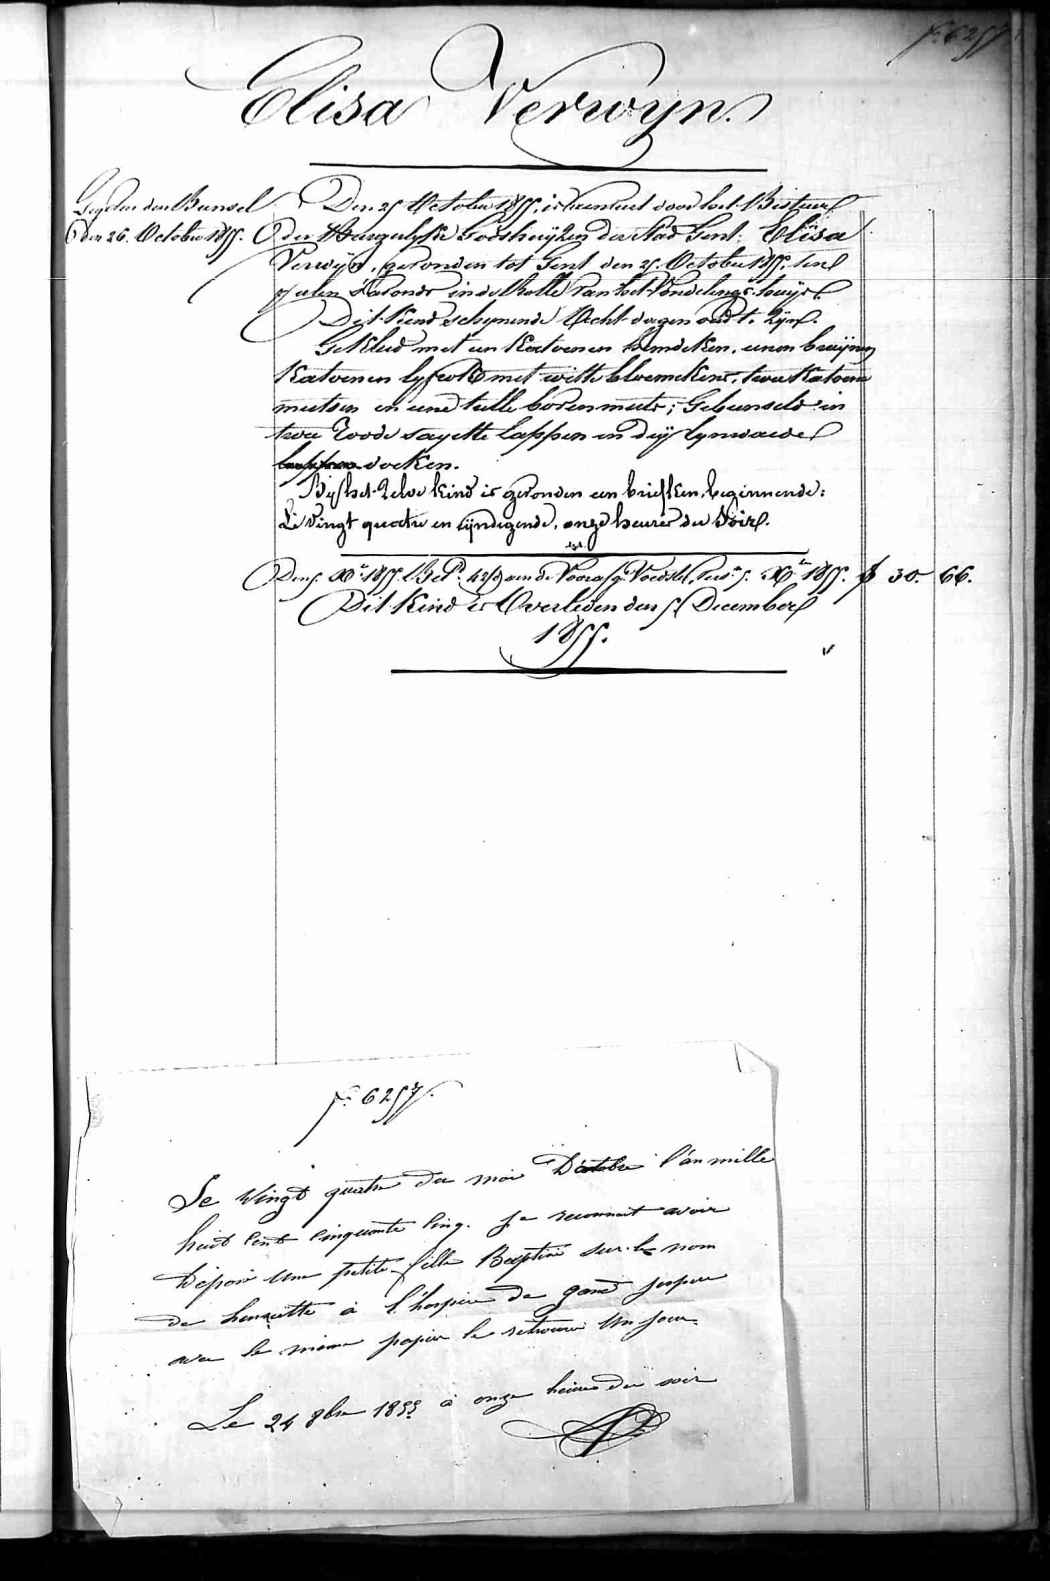 fo. 6257
Elisa Verwyn.
Gegeven den Bunsel
den 26. October 1855.
Den 25 October 1855, is aenveert door het Bestuer
der Burgerlyke Godshuijzen der Stad Gent: Elisa
Verwijn, gevonden tot Gent den 25. October 1855, ten
5 uren s'avonds in de Rolle van het Vondelings-huijs.
Dit Kind schynende Acht dagen oud te Zijn.
Gekleed met een Katoenen hemdeken, eenen bruijnen
Katoenen lyfrok met witte bloemekens, twee Katoene
mutsen en eene tulle boven muts; Gebunseld in
twee Roode sayette lappen en dry lynwaede
doeken.
Bij het Zelve kind is gevonden een briefken, beginnende:
Le vingt quatre en eijndigende, onze heures du Soir.
Den 5. Xbr. 1855. Bet. 42 d aen de Voorz. ge Voedsel, vers. 5. Xbr. 1855. f 30. 66.
Dit Kind is Overleden den 5 December
1855.
fo. 6257.
Le Vingt quatre du moi D'octobre l'an mille
huit Cent Cinquante Cinq. je reconnait avoir
Déposé Une petite fille Baptisé sur le nom
de henriette à l'hospice de gand j'espere
avec le même papier le retrouvé Un jour.
Le 24 8bre 1855 à onze heures du soir